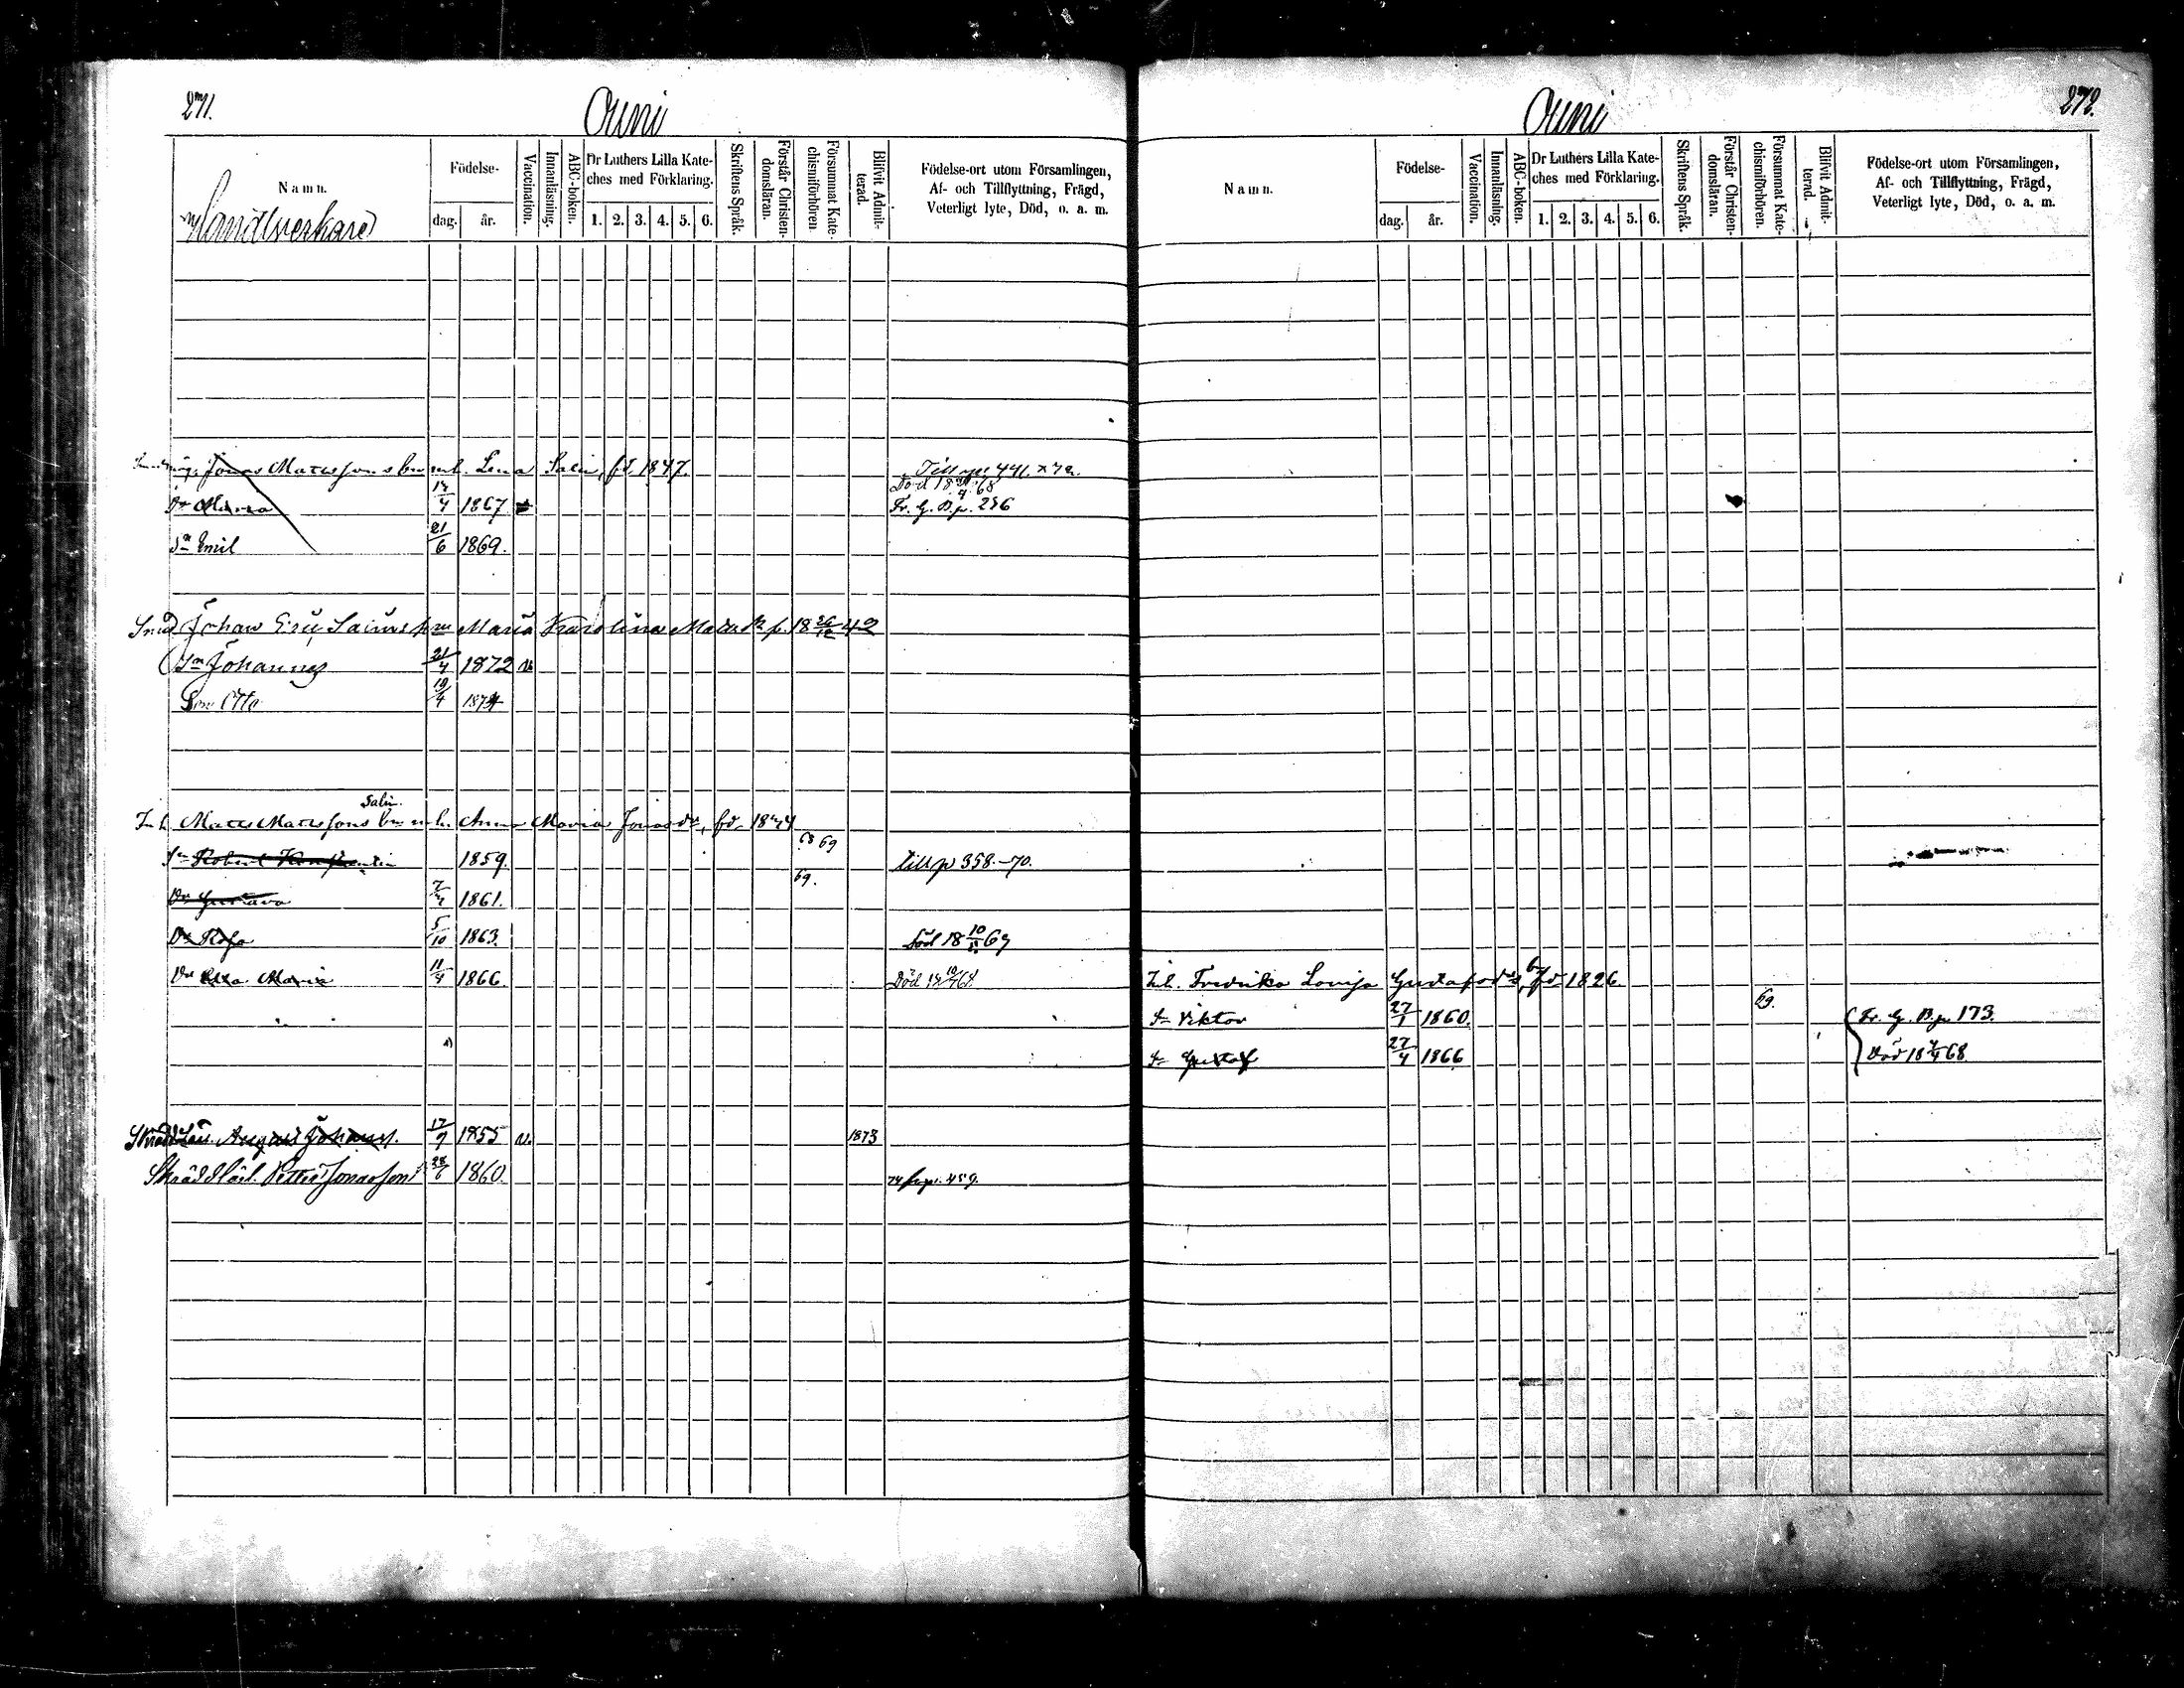 271.
Ouni
Namn.
Handtverkare
Födelse-
dag.
år.
Vaccination.
Innanläsning.
ABC-boken.
Dr Luthers Lilla Kate-
ches med Förklaring.
1. 2. 3. 4. 5. 6.
Skriftens Språk.
Förstår Christen-
domsläran.
Försummat Kate-
chismiförhören.
Blifvit Admit-
terad.
Födelse-ort utom Församlingen,
Af- och Tillflyttning, Frägd,
Veterligt lyte, Död, o. a. m.
Jonas Matts sons Lena Salin, fd. 1847. Till 441. 72.
Dr Maria 4 1867 Död 18 4 68
Fr. G. B. p. 256
Sn Emil 21/6 1869.
Smed Johan Eric Salins Maria Karolina Matts dr f. 18 26/12 49
Sn Johannes 21/4 1872 v.
Son Otto 19/4 1874
Salin.
Inh Matts Matts sons h. Anna Maria Jonas dr, fd. 1844
Sn Robert 1859. 68 69 till p 358.-70.
Dr Gustava 7/4 1861. 69.
Dr Rosa 5/10 1863. död 18 10/ 69
Dr Maria 11/4 1866. Död 18 10/ 68
Skrädd Lärl. August Johanss. 17/9 1855 v. 1873
Skrädd lärl. Petter Jonasson 28/6 1860. 74 p. 459.
Ouni
272.
Namn.
Födelse-
dag.
år.
Vaccination.
Innanläsning.
ABC-boken.
Dr Luthers Lilla Kate-
ches med Förklaring.
1. 2. 3. 4. 5. 6.
Skriftens Språk.
Förstår Christen-
domsläran.
Försummat Kate-
chismiförhören.
Blifvit Admit-
terad.
Födelse-ort utom Församlingen,
Af- och Tillflyttning, Frägd,
Veterligt lyte, Död, o. a. m.
Inh. Fredrika Lovisa Gustafsdrs, fd 1826
Sn Viktor 27/1 1860. 69. Fr. G. B. p. 173.
Sn Gustaf 27/4 1866 Död 18 /4 68